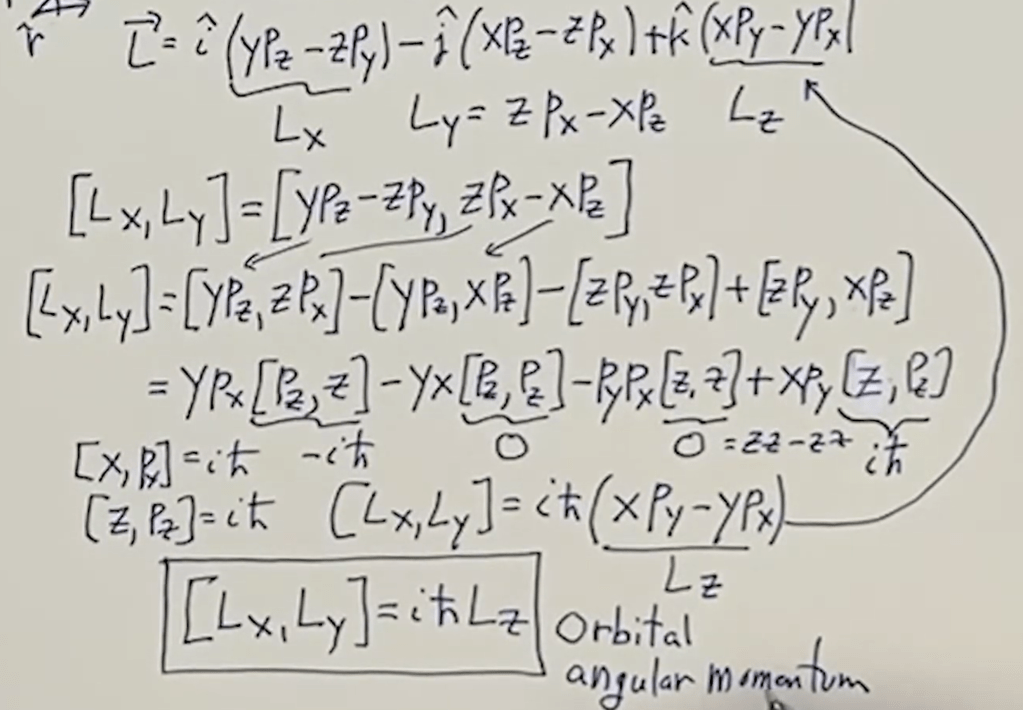 r̂ L⃗ = î (yP_z - zP_y) - ĵ (xP_z - zP_x) + k̂ (xP_y - yP_x)
L_x L_y = z P_x - xP_z L_z
[L_x, L_y] = [yP_z - zP_y, zP_x - xP_z]
[L_x, L_y] = [yP_z, zP_x] - [yP_z, xP_z] - [zP_y, zP_x] + [zP_y, xP_z]
= yP_x [P_z, z] - yx [P_z, P_z] - P_y P_x [z, z] + xP_y [z, P_z]
[x, P_x] = iħ -iħ 0 0 = zz - zz iħ
[z, P_z] = iħ [L_x, L_y] = iħ (xP_y - yP_x)
L_z
[L_x, L_y] = iħ L_z Orbital
angular momentum